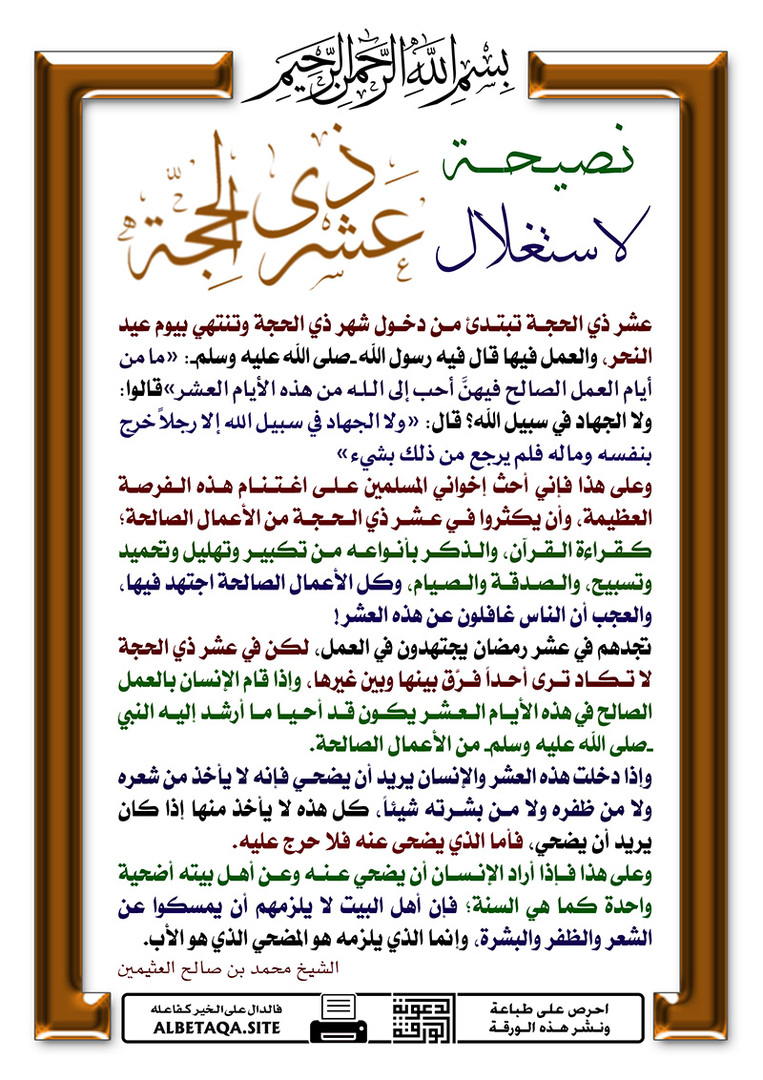 بسم الله الرحمن الرحيم
نصيحة
لاستغلال
عشر ذي الحجة
عشر ذي الحجة تبتدئ من دخول شهر ذي الحجة وتنتهي بيوم عيد
النحر، والعمل فيها قال فيه رسول الله ـصلى الله عليه وسلمـ: «ما من
أيام العمل الصالح فيهنَّ أحب إلى الله من هذه الأيام العشر» قالوا:
ولا الجهاد في سبيل الله؟ قال: «ولا الجهاد في سبيل الله إلا رجلاً خرج
بنفسه وماله فلم يرجع من ذلك بشيء»
وعلى هذا فإني أحث إخواني المسلمين على اغتنام هذه الفرصة
العظيمة، وأن يكثروا في عشر ذي الحجة من الأعمال الصالحة؛
كقراءة القرآن، والذكر بأنواعه من تكبير وتهليل وتحميد
وتسبيح، والصدقة والصيام، وكل الأعمال الصالحة اجتهد فيها،
والعجب أن الناس غافلون عن هذه العشر!
تجدهم في عشر رمضان يجتهدون في العمل، لكن في عشر ذي الحجة
لا تكاد ترى أحداً فرَّق بينها وبين غيرها، وإذا قام الإنسان بالعمل
الصالح في هذه الأيام العشر يكون قد أحيا ما أرشد إليه النبي
ـصلى الله عليه وسلمـ من الأعمال الصالحة.
وإذا دخلت هذه العشر والإنسان يريد أن يضحي فإنه لا يأخذ من شعره
ولا من ظفره ولا من بشرته شيئاً، كل هذه لا يأخذ منها إذا كان
يريد أن يضحي، فأما الذي يضحى عنه فلا حرج عليه.
وعلى هذا فإذا أراد الإنسان أن يضحي عنه وعن أهل بيته أضحية
واحدة كما هي السنة؛ فإن أهل البيت لا يلزمهم أن يمسكوا عن
الشعر والظفر والبشرة، وإنما الذي يلزمه هو المضحي الذي هو الأب.
الشيخ محمد بن صالح العثيمين
احرص على طباعة
ونشر هذه الورقة
الورقة الدعوية
فالدال على الخير كفاعله
ALBETAQA.SITE